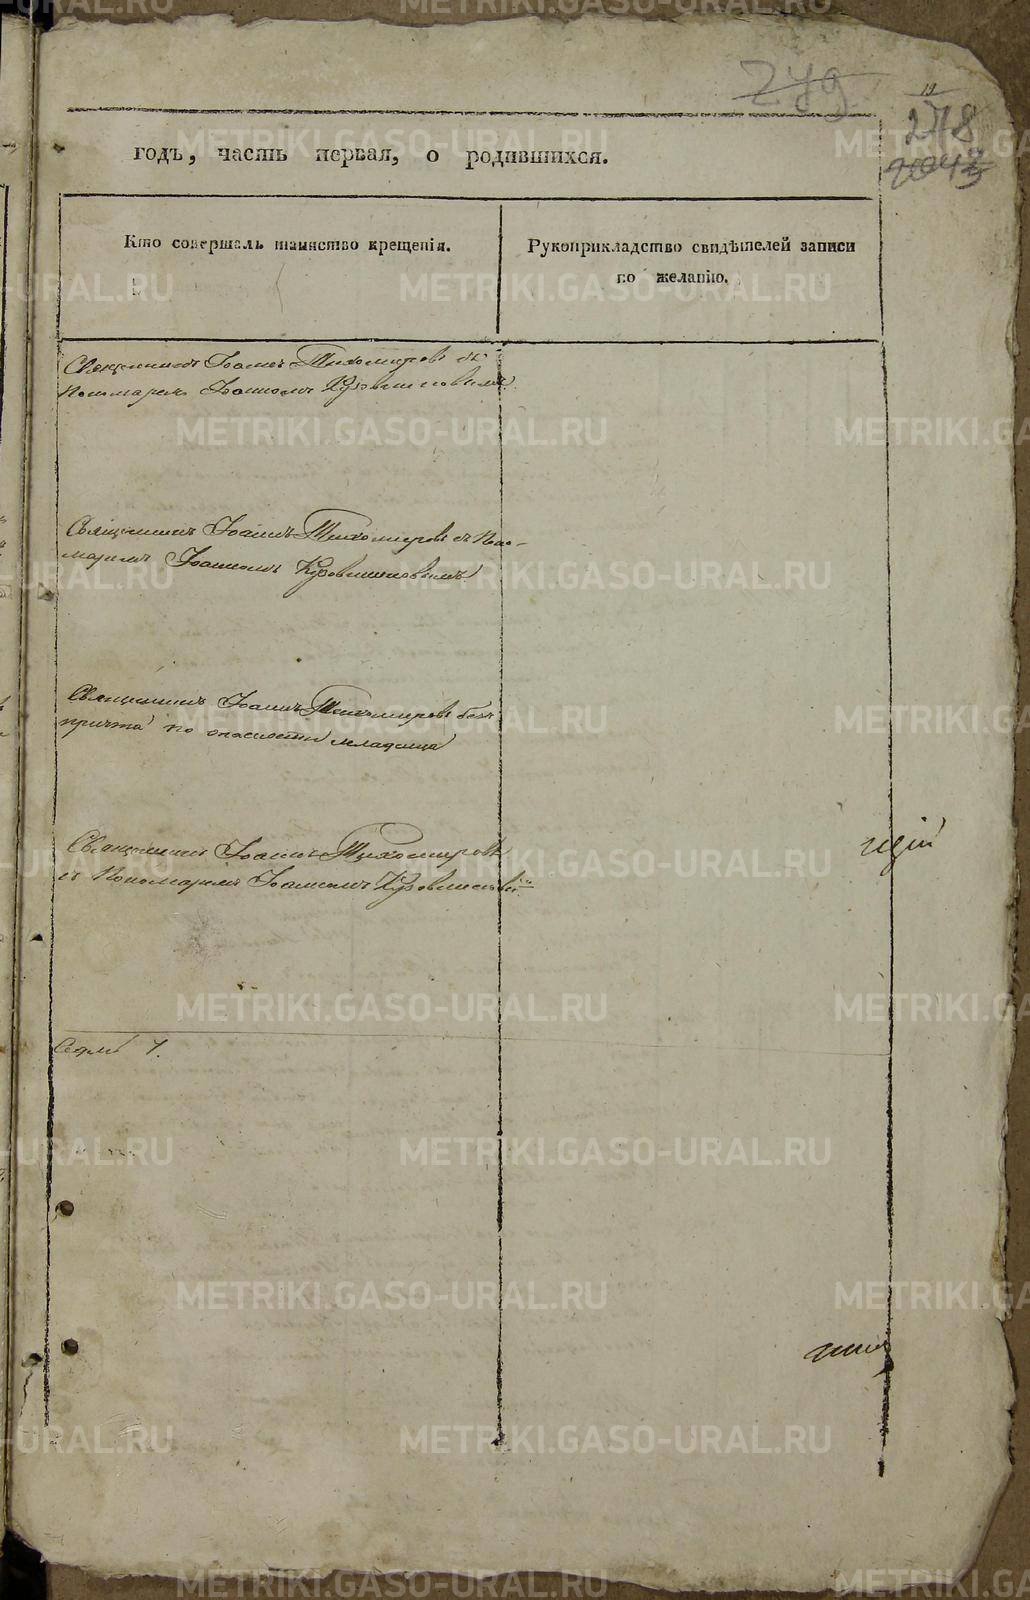 279
19
278
годъ, часть первая, о родившихся.
Кто совершалъ таинство крещенія.
Рукоприкладство свидѣтелей записи
по желанію.
Священникъ Іоаннъ Тихомировъ съ
Пономаремъ Іоанномъ Кузовниковымъ.
Священникъ Іоаннъ Тихомировъ съ Поно-
маремъ Іоанномъ
Священникъ Іоаннъ Тихомировъ безъ
причта по опасности младенца
Священникъ Іоаннъ Тихомировъ
съ Пономаремъ Іоанномъ
щій
Седмь 7.
METRIKI.GASO-URAL.RU